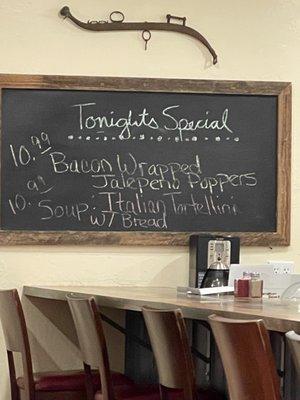 Tonights Special
10.99 Bacon Wrapped
Jalepeño Poppers
10.99 Soup: Italian Tortellini
w/ Bread